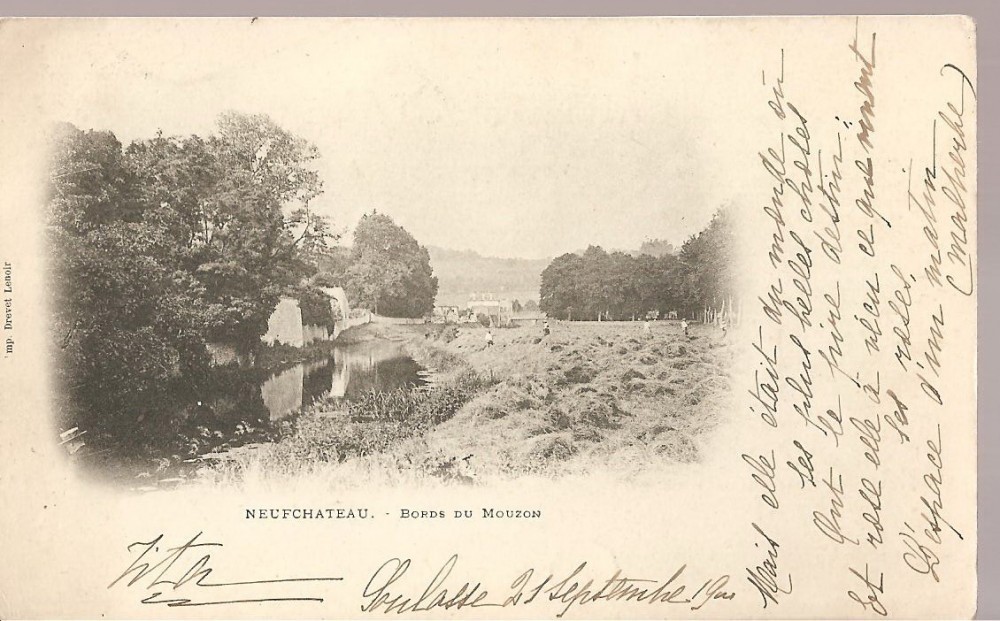 Imp. Drevet Lenoir
NEUFCHATEAU. - BORDS DU MOUZON
Soulosse 21 Septembre 1900
Mais elle était du monde où
les plus belles choses
Ont le pire destin;
Et rose elle a vécu ce que vivent
les roses,
L'espace d'un matin
(Malherbe)